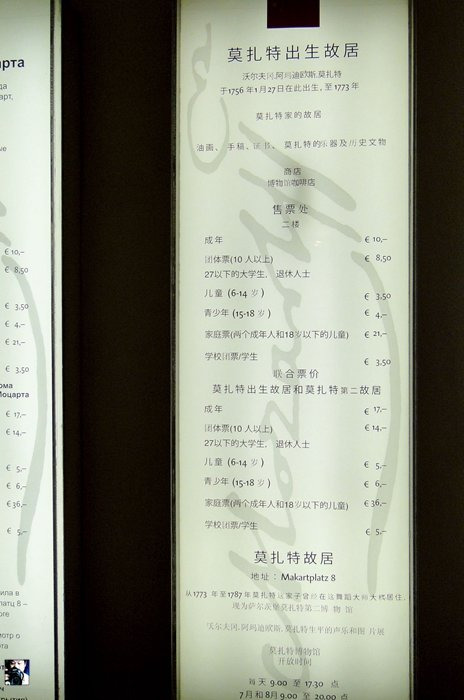 арта
да
арт,
ые
€ 10,–
€ 8,50
€ 3,50
€ 4,–
€ 21,–
€ 3,50
ома
Моцарта
€ 17,–
€ 14,–
€ 5,–
€ 6,–
€ 36,–
€ 5,–
ила в
латц 8 –
ore
мотр о
莫扎特出生故居
沃尔夫冈.阿玛迪欧斯.莫扎特
于1756年1月27日在此出生,至1773年
莫扎特家的故居
油画、手稿、证书、莫扎特的乐器及历史文物
商店
博物馆咖啡店
售票处
二楼
成年 € 10,–
团体票(10人以上) € 8,50
27以下的大学生, 退休人士
儿童 (6-14 岁) € 3,50
青少年 (15-18 岁) € 4,–
家庭票(两个成年人和18岁以下的儿童) € 21,–
学校团票/学生 € 3,50
联合票价
莫扎特出生故居和莫扎特第二故居
成年 € 17,–
团体票(10人以上) € 14,–
27以下的大学生, 退休人士
儿童 (6-14 岁) € 5,–
青少年 (15-18 岁) € 6,–
家庭票(两个成年人和18岁以下的儿童) €36,–
学校团票/学生 € 5,–
莫扎特故居
地址: Makartplatz 8
从1773 年至1787年莫扎特这家子曾经在这舞蹈大师大楼居住,
现为萨尔茨堡莫扎特第二博物馆
沃尔夫冈.阿玛迪欧斯.莫扎特生平的声乐和图片展
莫扎特博物馆
开放时间
每天 9.00 至 17.30 点
7月和8月 9.00 至 20.00 点